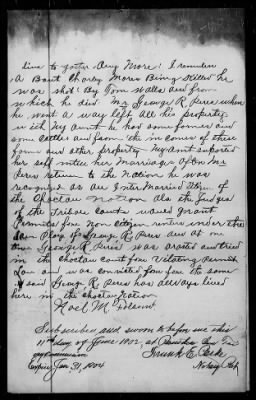 time to gother Any More I remember
A Bout Charley Moris Being Killed he
was shot By Tom Walls and from
which he died Mr George R. Peres when
he went a way left all his property
with My Aunt he had some farmes and
some Cattle and from the in comes of these
farms and other property My Aunt suported
her self untill her Marriage After Mr
Peres return to the Nation he was
recognized as an Inter Married citizen of
the Choctaw Nation Also the Judges
of the Tribal Courts issued Grant
Permites for Non citizen renters under the
law of George R. Peres and at one
time George R Peres was arested and tried
in the Choctaw court for Violating Permit
Law and was convicted for the same
said George R. Peres has allways lived
here in the Choctaw Nation
Noel M. Folsom
Subscribed and sworn to before me this
11th day of June 1902, at
my commission
Expires Jan 31, 1904
Frank E. Parke
Notary Pub